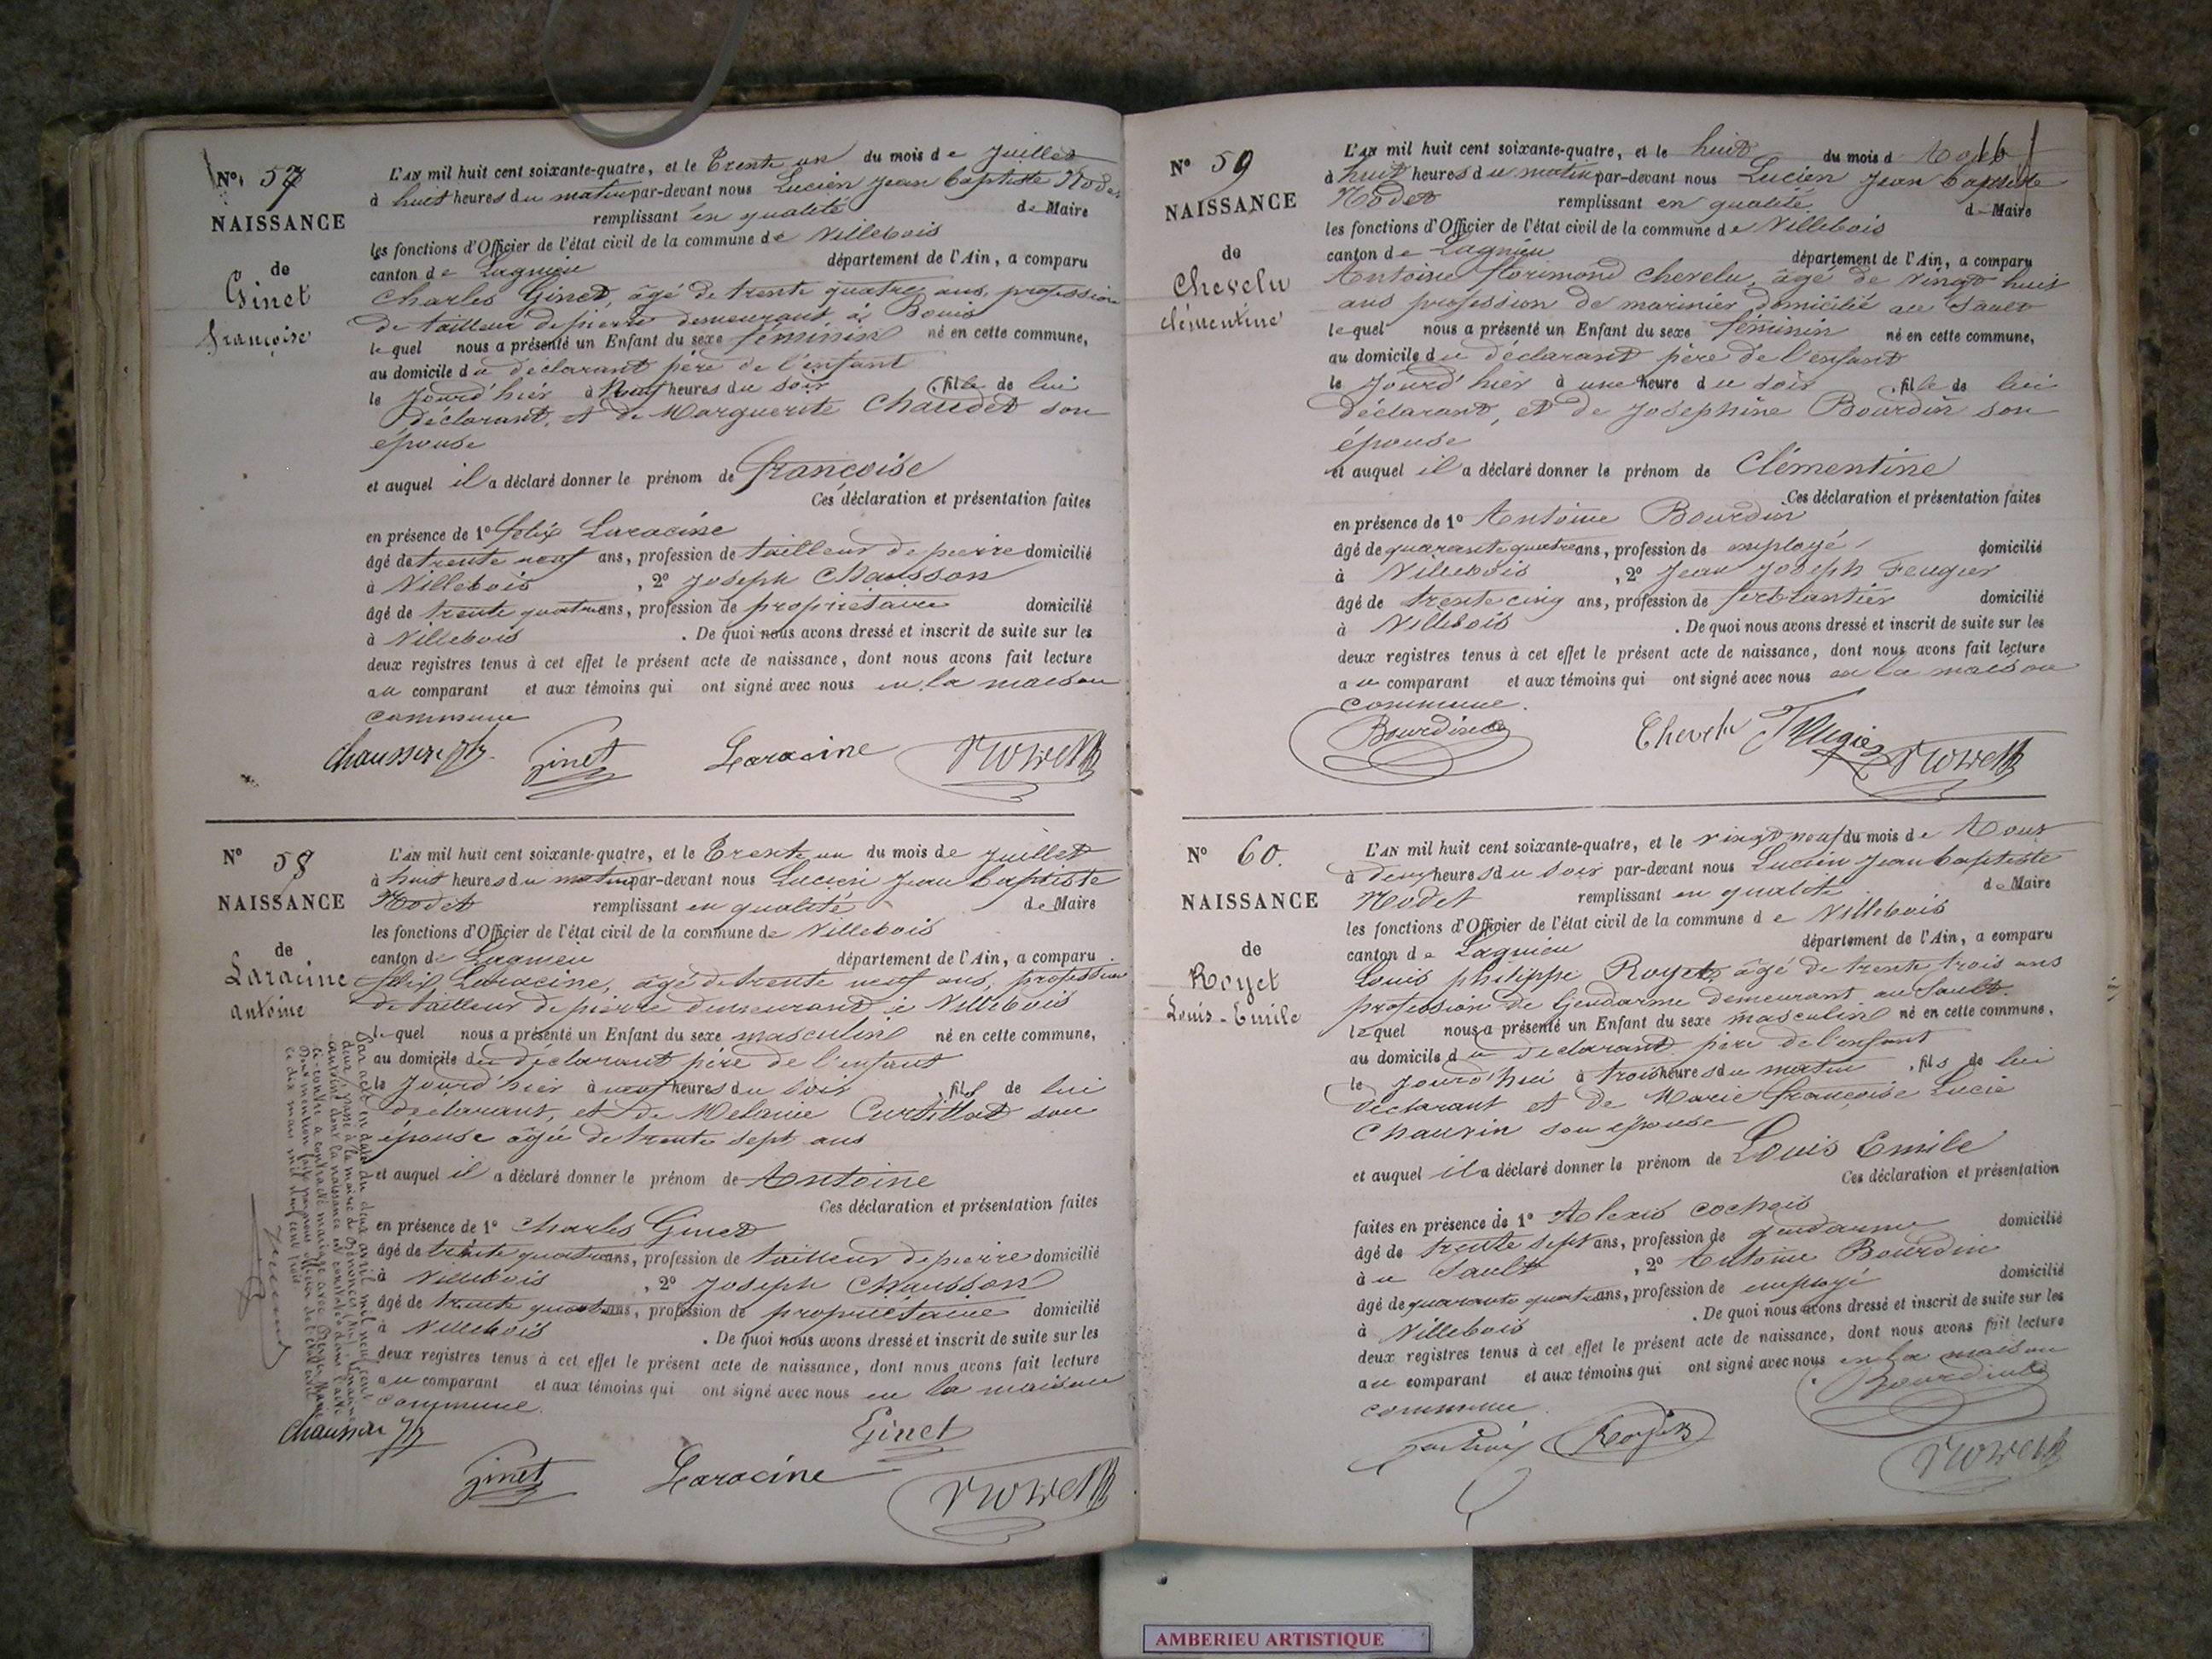 N° 57
NAISSANCE
de
Ginet
françoise
L'AN mil huit cent soixante-quatre, et le Trente un du mois de Juillet
à huit heures du matin par-devant nous Lucien Jean baptiste Rodet
remplissant en qualité de Maire
les fonctions d'Officier de l'état civil de la commune de Villebois
canton de Lagnieu département de l'Ain, a comparu
Charles Ginet, âgé de trente quatre ans, profession
de tailleur de pierre demeurant à Bouis
lequel nous a présenté un Enfant du sexe féminin né en cette commune,
au domicile du déclarant père de l'enfant
le jourd'hier à neuf heures du soir, fille de lui
déclarant, et de Marguerite Chaudet son
épouse
et auquel il a déclaré donner le prénom de françoise
Ces déclaration et présentation faites
en présence de 1° félix Laracine
âgé de trente neuf ans, profession de tailleur de pierre domicilié
à Villebois, 2° Joseph Chausson
âgé de trente quatre ans, profession de propriétaire domicilié
à Villebois. De quoi nous avons dressé et inscrit de suite sur les
deux registres tenus à cet effet le présent acte de naissance, dont nous avons fait lecture
au comparant et aux témoins qui ont signé avec nous en la maison
commune
Ginet Laracine
N° 58
NAISSANCE
de
Laracine
antoine
L'AN mil huit cent soixante-quatre, et le Trente un du mois de juillet
à huit heures du matin par-devant nous Lucien Jean baptiste
Rodet remplissant en qualité de Maire
les fonctions d'Officier de l'état civil de la commune de Villebois
canton de Lagnieu département de l'Ain, a comparu
félix Laracine, âgé de trente neuf ans, profession
de tailleur de pierre demeurant à Villebois
lequel nous a présenté un Enfant du sexe masculin né en cette commune,
au domicile du déclarant père de l'enfant
le jourd'hier à neuf heures du soir, fils de lui
déclarant, et de Melanie Curtillat son
épouse âgée de trente sept ans
et auquel il a déclaré donner le prénom de Antoine
Ces déclaration et présentation faites
en présence de 1° Charles Ginet
âgé de trente quatre ans, profession de tailleur de pierre domicilié
à Villebois, 2° Joseph Chausson
âgé de trente quatre ans, profession de propriétaire domicilié
à Villebois. De quoi nous avons dressé et inscrit de suite sur les
deux registres tenus à cet effet le présent acte de naissance, dont nous avons fait lecture
au comparant et aux témoins qui ont signé avec nous en la maison
commune.
Par acte en date du deux avril mil neuf cent
Ginet
Ginet Laracine
N° 59
NAISSANCE
de
Chevelu
clémentine
L'AN mil huit cent soixante-quatre, et le huit du mois d Août
à huit heures du matin par-devant nous Lucien Jean baptiste
Rodet remplissant en qualité de Maire
les fonctions d'Officier de l'état civil de la commune de Villebois
canton de Lagnieu département de l'Ain, a comparu
Antoine florimond Chevelu, âgé de vingt huit
ans profession de marinier domicilié au Sault
lequel nous a présenté un Enfant du sexe féminin né en cette commune,
au domicile du déclarant père de l'enfant
le jourd'hier à une heure du soir, fille de lui
déclarant, et de Josephine Bourdin son
épouse
et auquel il a déclaré donner le prénom de Clémentine
Ces déclaration et présentation faites
en présence de 1° Antoine Bourdin
âgé de quarante quatre ans, profession de employé domicilié
à Villebois, 2° Jean Joseph Feugier
âgé de trente cinq ans, profession de ferblantier domicilié
à Villebois. De quoi nous avons dressé et inscrit de suite sur les
deux registres tenus à cet effet le présent acte de naissance, dont nous avons fait lecture
au comparant et aux témoins qui ont signé avec nous en la maison
commune.
Bourdin Chevelu
N° 60.
NAISSANCE
de
Royet
Louis-Emile
L'AN mil huit cent soixante-quatre, et le vingt neuf du mois de Aout
à deux heures du soir par-devant nous Lucien Jean baptiste
Rodet remplissant en qualité de Maire
les fonctions d'Officier de l'état civil de la commune de Villebois
canton de Lagnieu département de l'Ain, a comparu
Louis philippe Royet, âgé de trente trois ans
profession de Gendarme demeurant au Sault.
lequel nous a présenté un Enfant du sexe masculin né en cette commune,
au domicile du déclarant père de l'enfant
le jourd'hui à trois heures du matin, fils de lui
déclarant et de Marie françoise Lucie
Chauvin son épouse
et auquel il a déclaré donner le prénom de Louis Emile
Ces déclaration et présentation
faites en présence de 1° Alexis
âgé de trente sept ans, profession de gendarme domicilié
au Sault, 2° Antoine Bourdin
âgé de quarante quatre ans, profession de employé domicilié
à Villebois. De quoi nous avons dressé et inscrit de suite sur les
deux registres tenus à cet effet le présent acte de naissance, dont nous avons fait lecture
au comparant et aux témoins qui ont signé avec nous en la maison
commune. Bourdin
Royet
AMBERIEU ARTISTIQUE